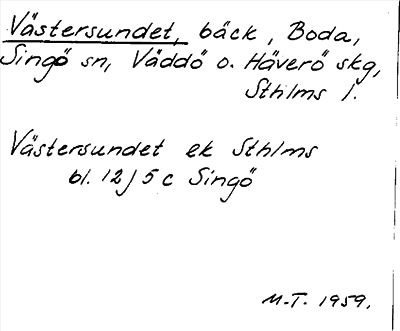 Västersundet, bäck, Boda,
Singö sn, Väddö o. Häverö skg,
Sthlms l.
Västersundet ek Sthlms
bl. 12j 5c Singö
M.T. 1959.